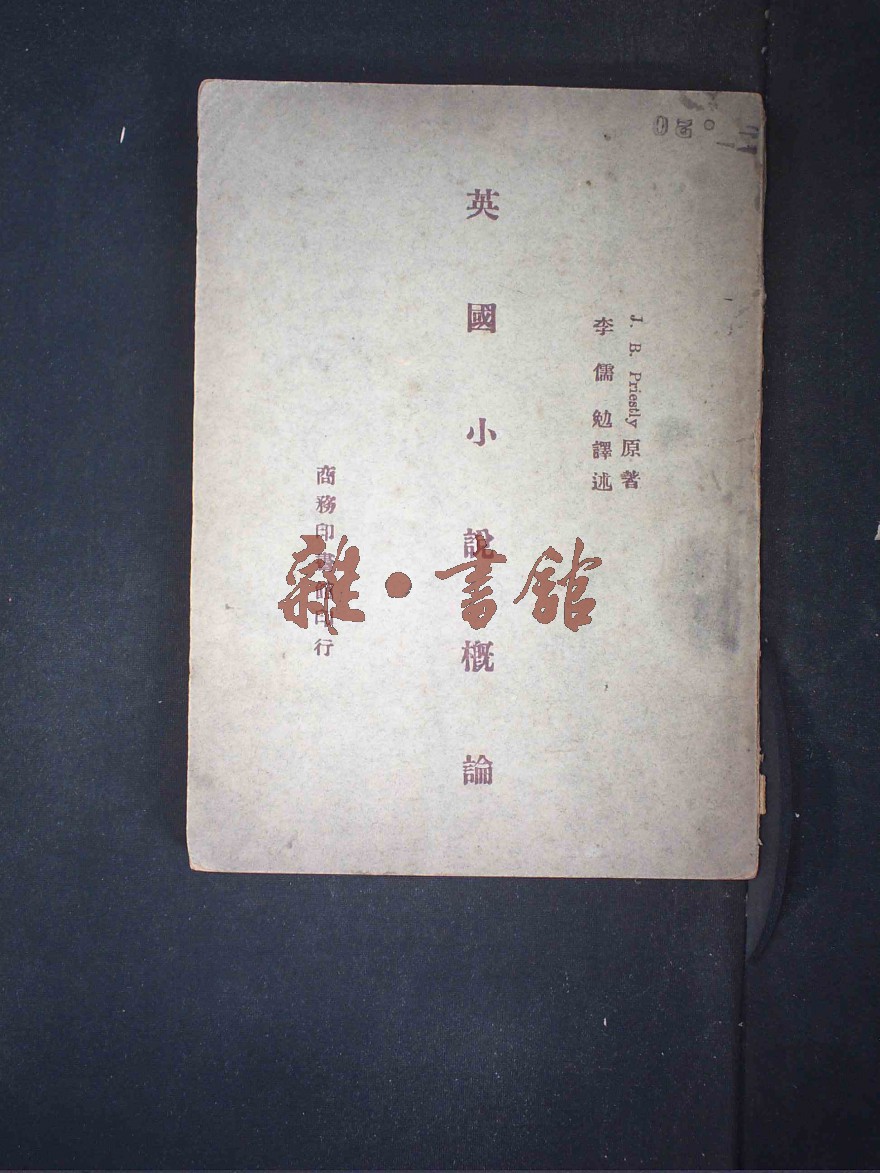 J. B. Priestly 原著
李儒勉譯述
英國小說概論
商務印書館印行
雜·書館